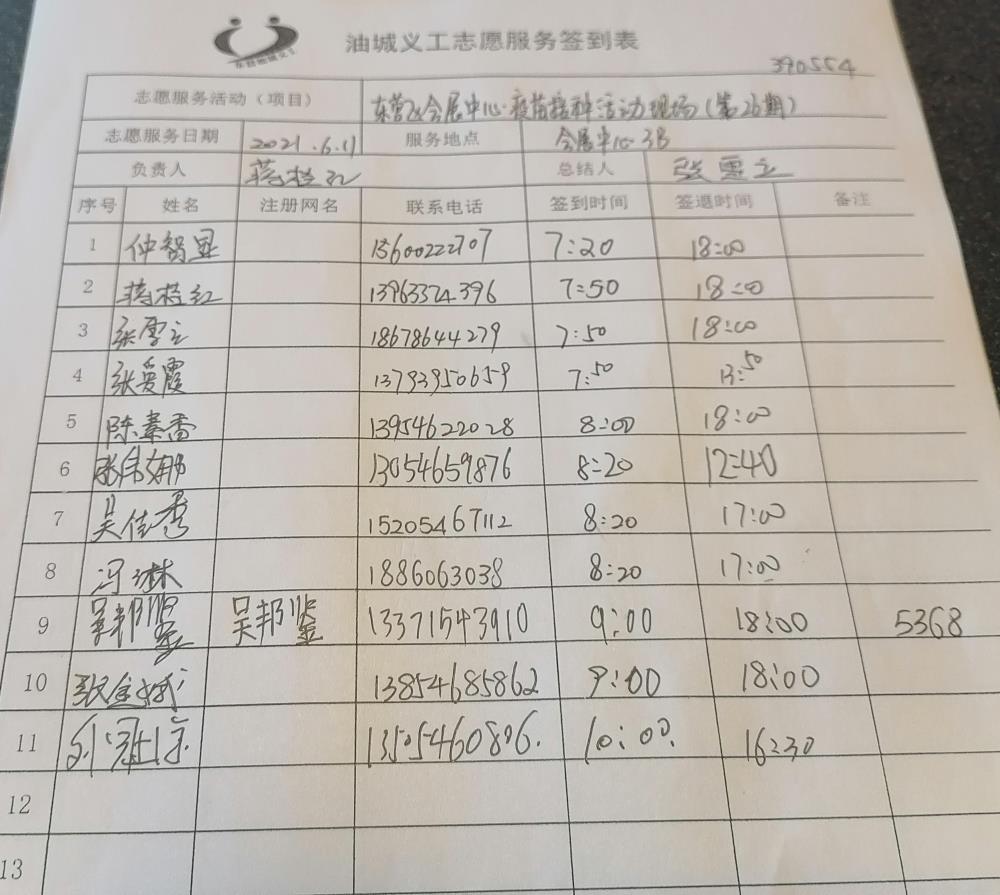 油城义工志愿服务签到表
390554
志愿服务活动（项目） 东营区会展中心疫苗接种活动现场（第26期）
志愿服务日期 2021.6.11 服务地点 会展中心3B
负责人 总结人
序号 姓名 注册网名 联系电话 签到时间 签退时间 备注
1 仲智显 15600222707 7:20 18:00
2 13963374396 7:50 18:00
3 18678644279 7:50 18:00
4 张爱霞 13793950659 7:50 13:50
5 陈素香 13954622028 8:00 18:00
6 13054659876 8:20 12:40
7 吴佳秀 15205467112 8:20 17:00
8 冯琳 1886063038 8:20 17:00
9 吴邦鉴 吴邦鉴 13371543910 9:00 18:00 5368
10 13854685862 9:00 18:00
11 13505460806. 10:00. 16:30
12
13